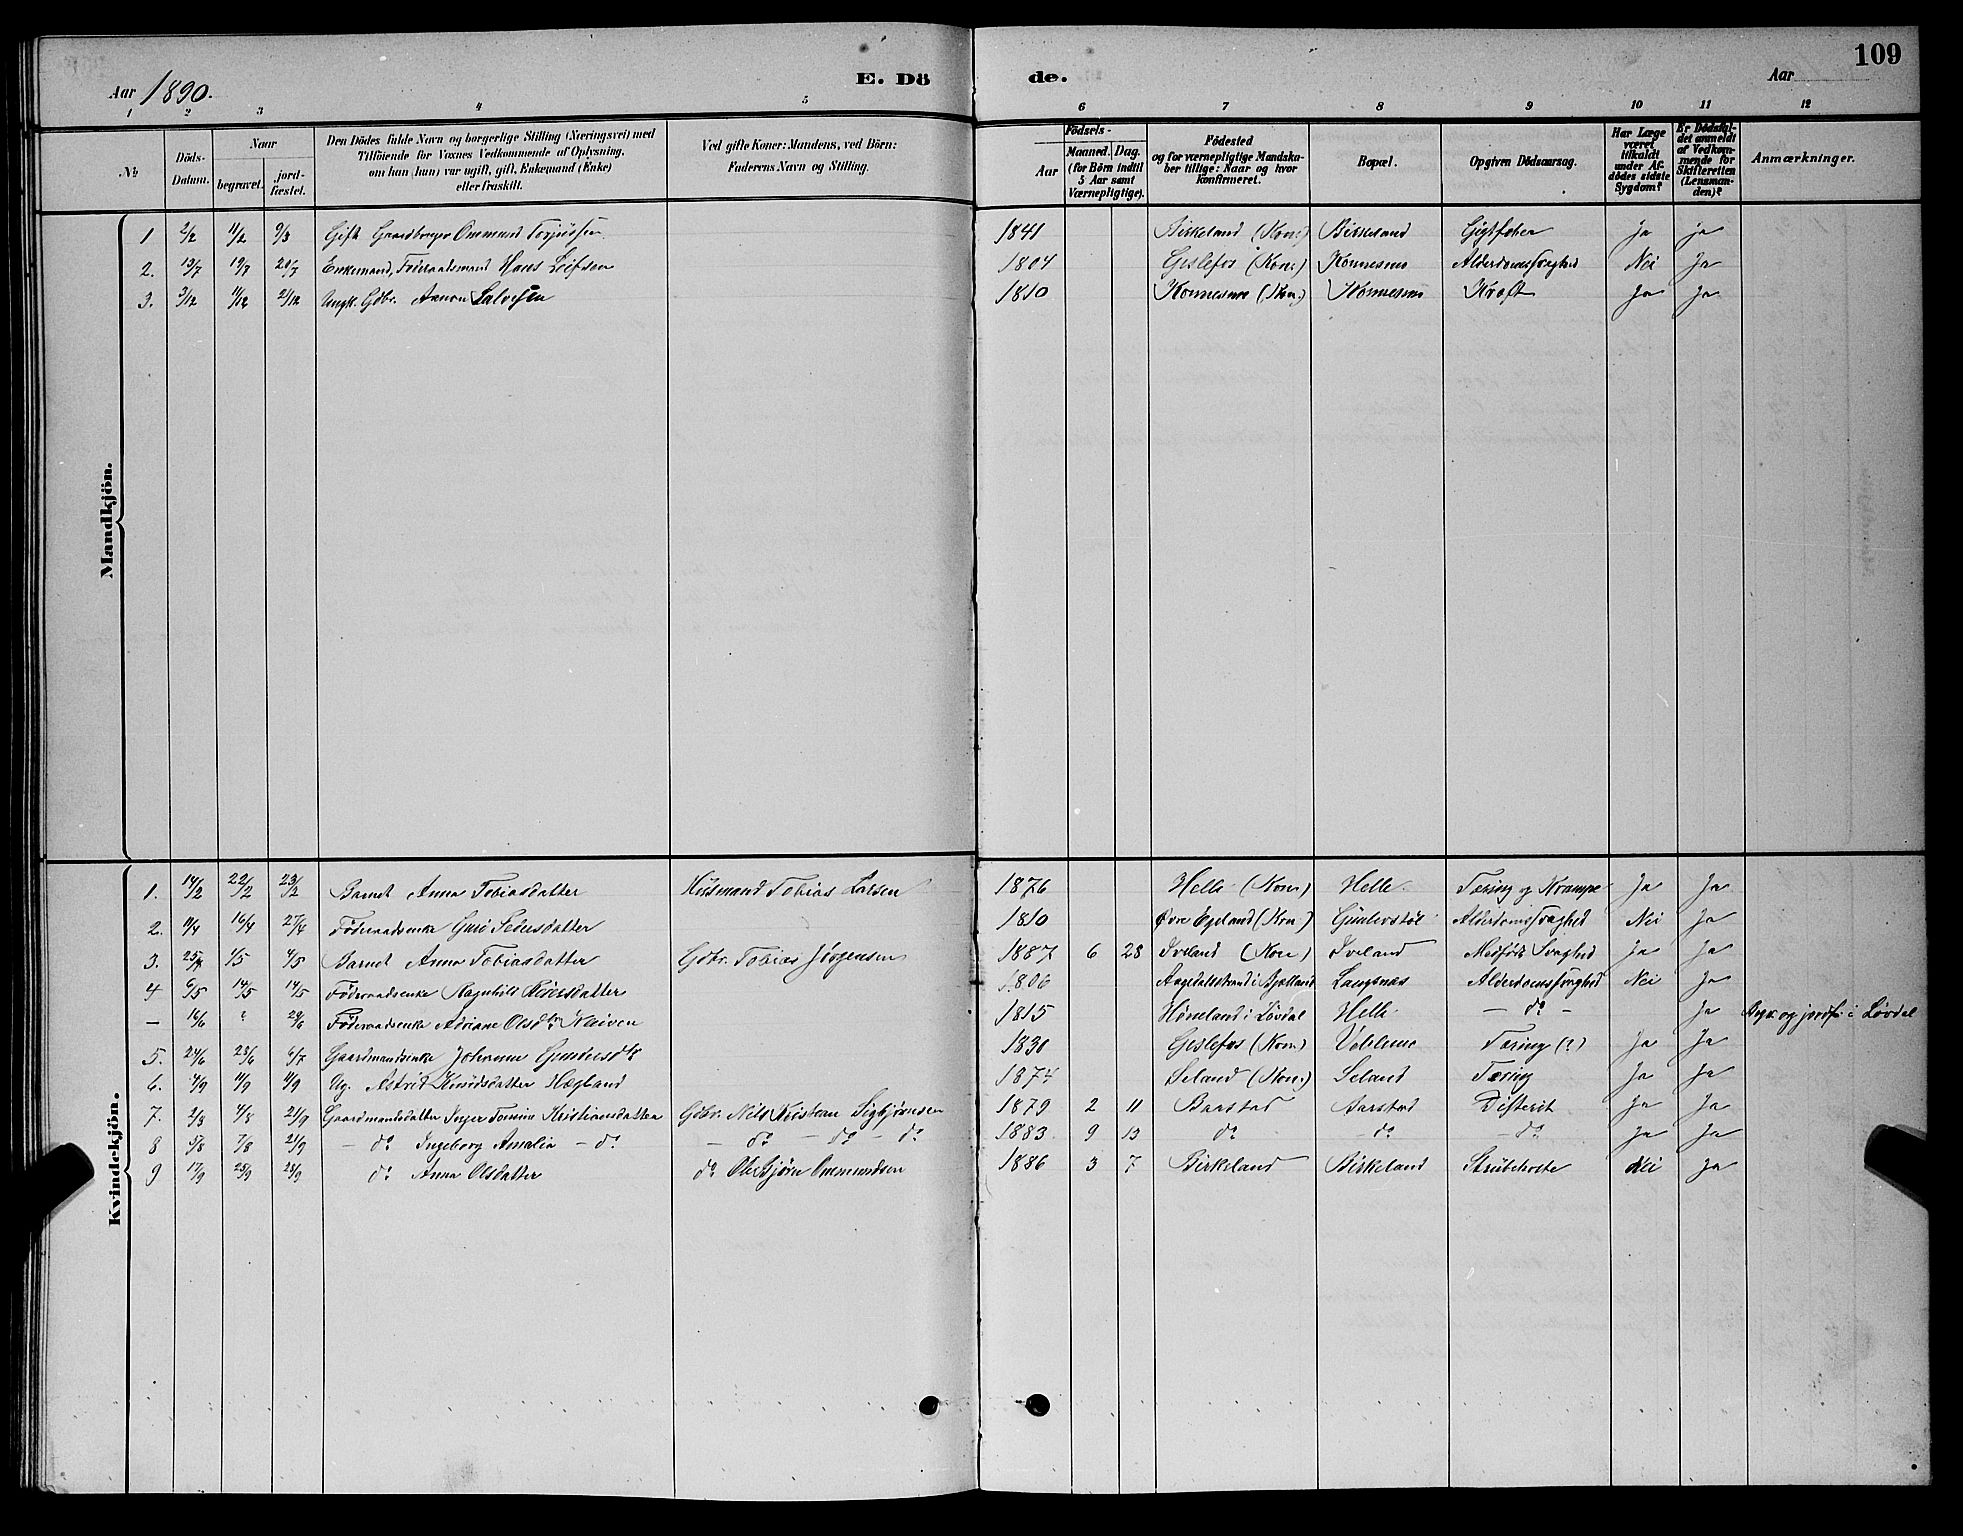 109
Aar 1890.
E. Dö
de.
Aar
1 2 3 4 5 6 7 8 9 10 11 12
№
Döds-Datum.
Naar
begravet.
jordfæstet.
Den Dödes fulde Navn og borgerlige Stilling (Næringsvei) med
Tilföiende for Voxnes Vedkommende af Oplysning,
om han (hun) var ugift, gift, Enkemand (Enke)
eller fraskilt.
Ved gifte Koner: Mandens, ved Börn:
Faderens Navn og Stilling.
Födsels-
Aar
Maaned. Dag.
(for Börn indtil
5 Aar samt
Værnepligtige).
Födested
og for værnepligtige Mandska-
ber tillige: Naar og hvor
konfirmeret.
Bopæl.
Opgiven Dödsaarsag.
Har Læge
været
tilkaldt
under Af-
dödes sidste
Sygdom?
Er Dödsfal-
det anmeldt
af Vedkom-
mende for
Skifteretten
(Lensman-
den)?
Anmærkninger.
Mandkjön.
1 2/2 11/2 9/3 Gift Gaardbruger Ommund Torjusen 1841 Birkeland (Kon.) Birkeland Gigtfeber ja ja
2. 13/7 19/7 20/7 Enkemand, Föderaadsmand Hans Leifsen 1804 Geslefos (Kon.) Konnesmo Alderdomssvaghed Nei Ja
3. 3/12 11/12 21/12 Ungk. Gdbr. Aanon Salvesen 1810 Konnesmo (Kon.) Konnesmo Kræft Ja Ja
Kvindekjön.
1. 14/2 22/2 23/2 Barnet Anna Tobiasdatter Husmand Tobias Larsen 1876 Helle (Kon.) Helle Tæring og Krampe Ja Ja
2. 11/4 16/4 27/4 Föderaadsenke Guro Pedersdatter 1810 Øvre Egeland (Kon.) Alderdomssvaghed Nei Ja
3. 25/4 1/5 4/5 Barnet Anna Tobiasdatter Gdbr. Tobias Jørgensen 1887 6 28 Iveland (Kon.) Iveland Medfödt Svaghed Ja Ja
4 6/5 14/5 14/5 Föderaadsenke Ragnhild 1806 i Bjelland Langenæs Alderdomssvaghed Nei Ja
— 16/6 ? 29/6 Föderaadsenke Adriane Olsdtr. Kleiven 1815 Høneland i Løvdal Helle — do — Ja Begr. og jordf. i Løvdal
5. 24/6 28/6 6/7 Gaardmandsenke Johanne Gundersdtr 1830 Geslefos (Kon.) Tæring (?) Ja Ja
6. 4/9 11/9 11/9 Ug. Astrid Knudsdatter Hægland 1874 Seland (Kon.) Seland Tæring Ja Ja
7. 2/8 4/8 21/9 Gaardmandsdatter Inger Tomine Kristiansdatter Gdbr. Nils Kristian Sigbjørnsen 1879 2 11 Baarstad Aarstad Difterit Ja Ja
8 5/8 7/8 21/9 — do Ingeborg Amalia — do — do — do — do 1883 9 13 do — do — do Ja Ja
9 17/9 28/9 28/9 do Anna Olsdatter do Ole Bjørn Ommundsen 1886 3 7 Birkeland Birkeland Strubehoste Nei Ja